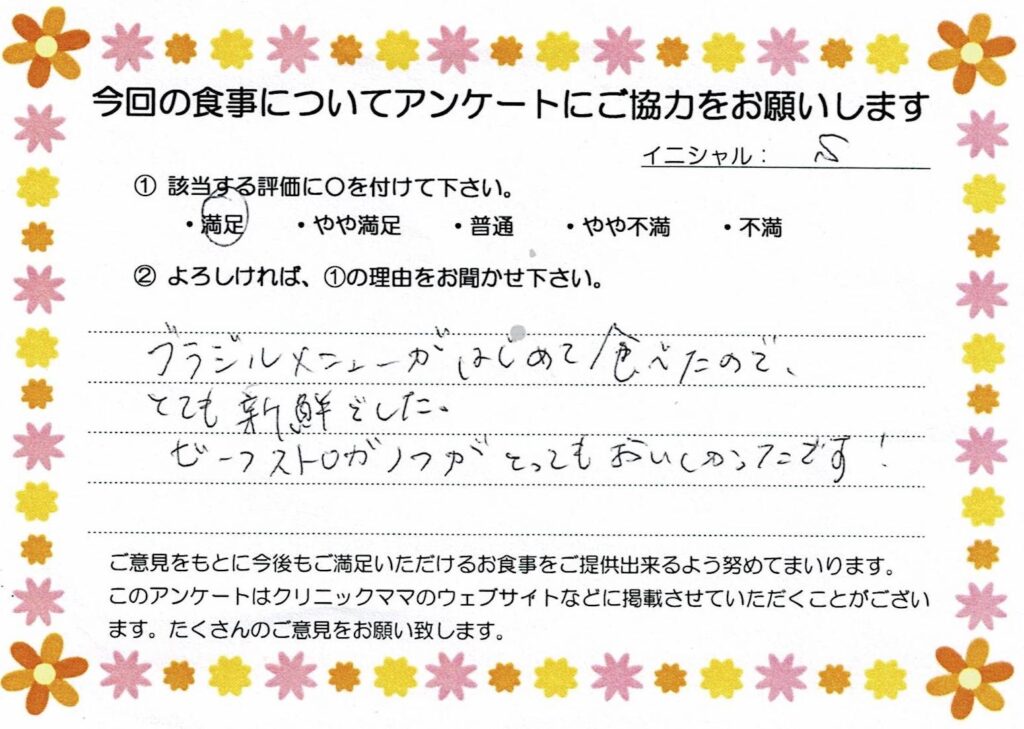 今回の食事についてアンケートにご協力をお願いします
イニシャル： S
① 該当する評価に〇を付けて下さい。
・満足 ・やや満足 ・普通 ・やや不満 ・不満
② よろしければ、①の理由をお聞かせ下さい。
ブラジルメニューがはじめて食べたので、
とても新鮮でした。
ビーフストロガノフがとってもおいしかったです！
ご意見をもとに今後もご満足いただけるお食事をご提供出来るよう努めてまいります。
このアンケートはクリニックママのウェブサイトなどに掲載させていただくことがござい
ます。たくさんのご意見をお願い致します。